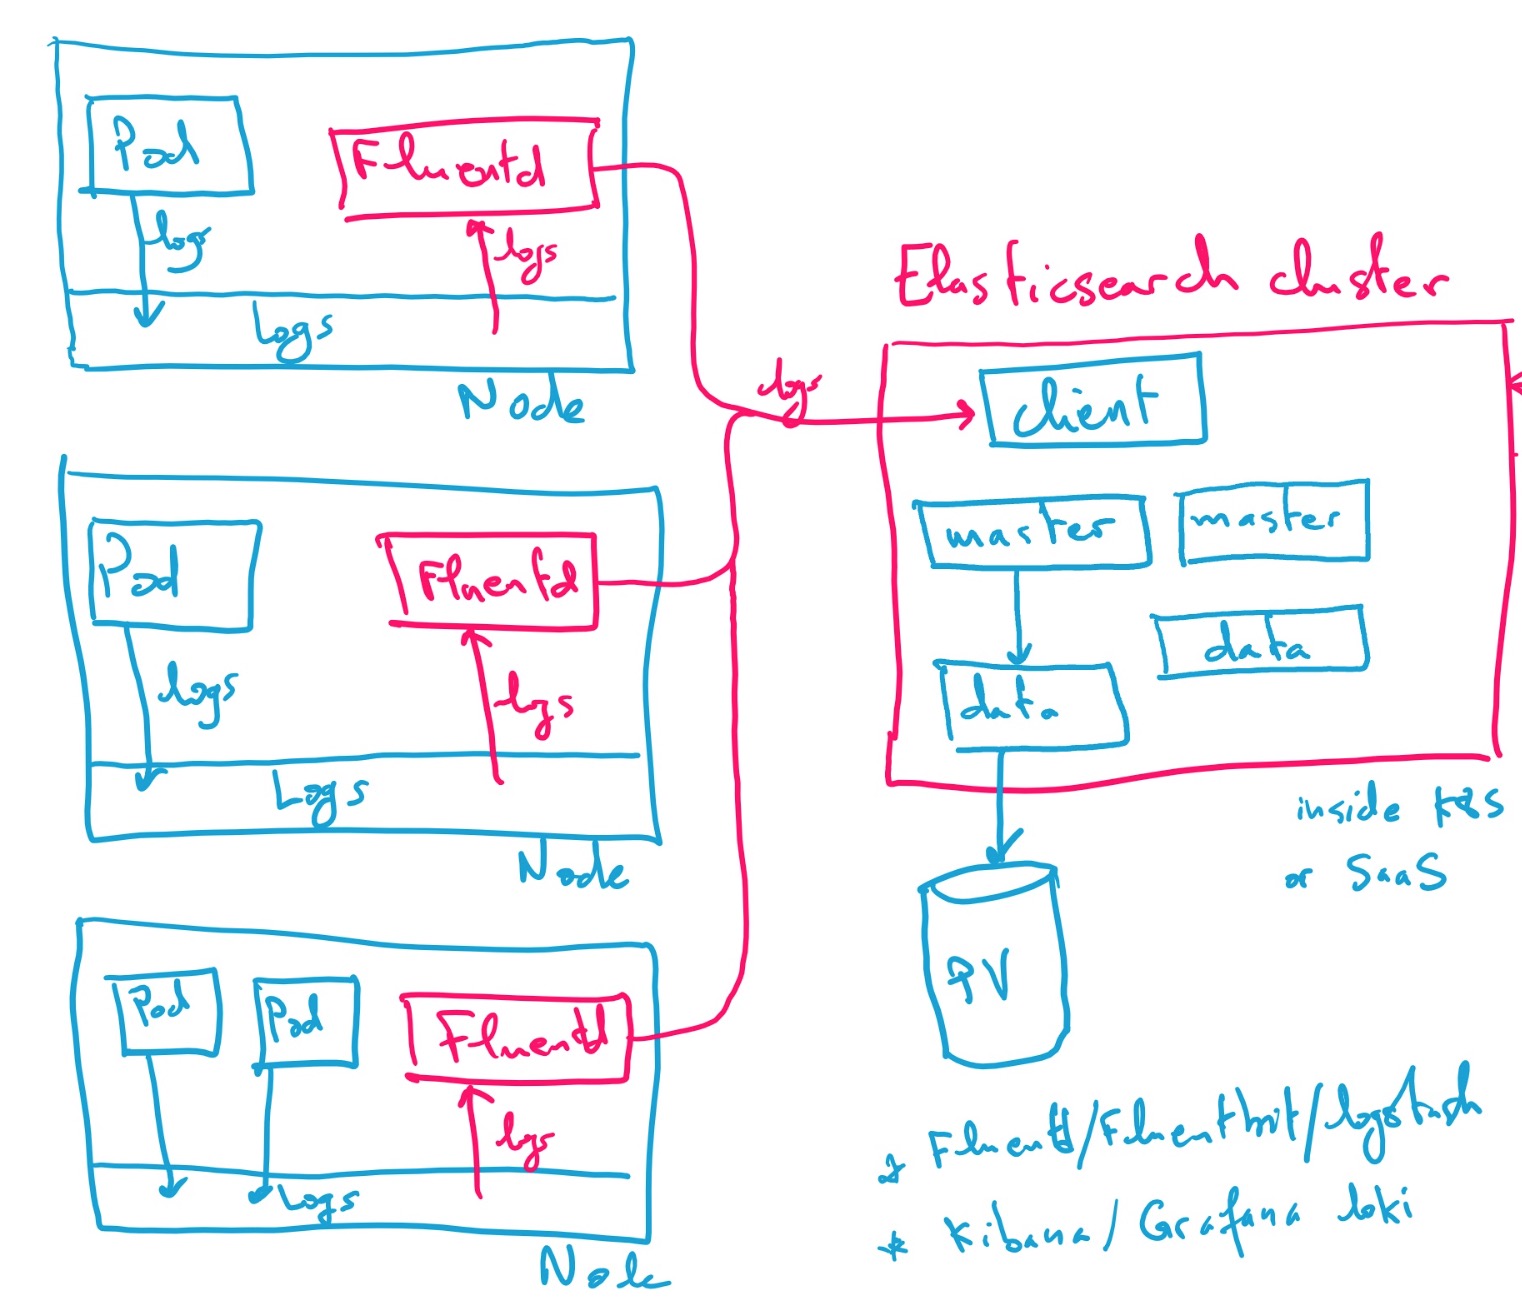 Pod
Fluentd
logs
logs
Logs
Node
Pod
Fluentd
logs
logs
Logs
Node
Pod
Pod
Fluentd
logs
Logs
Node
logs
Elasticsearch cluster
client
master
master
data
data
inside K8S
or SaaS
PV
* Fluentd/Fluentbit/logstash
* Kibana/Grafana loki